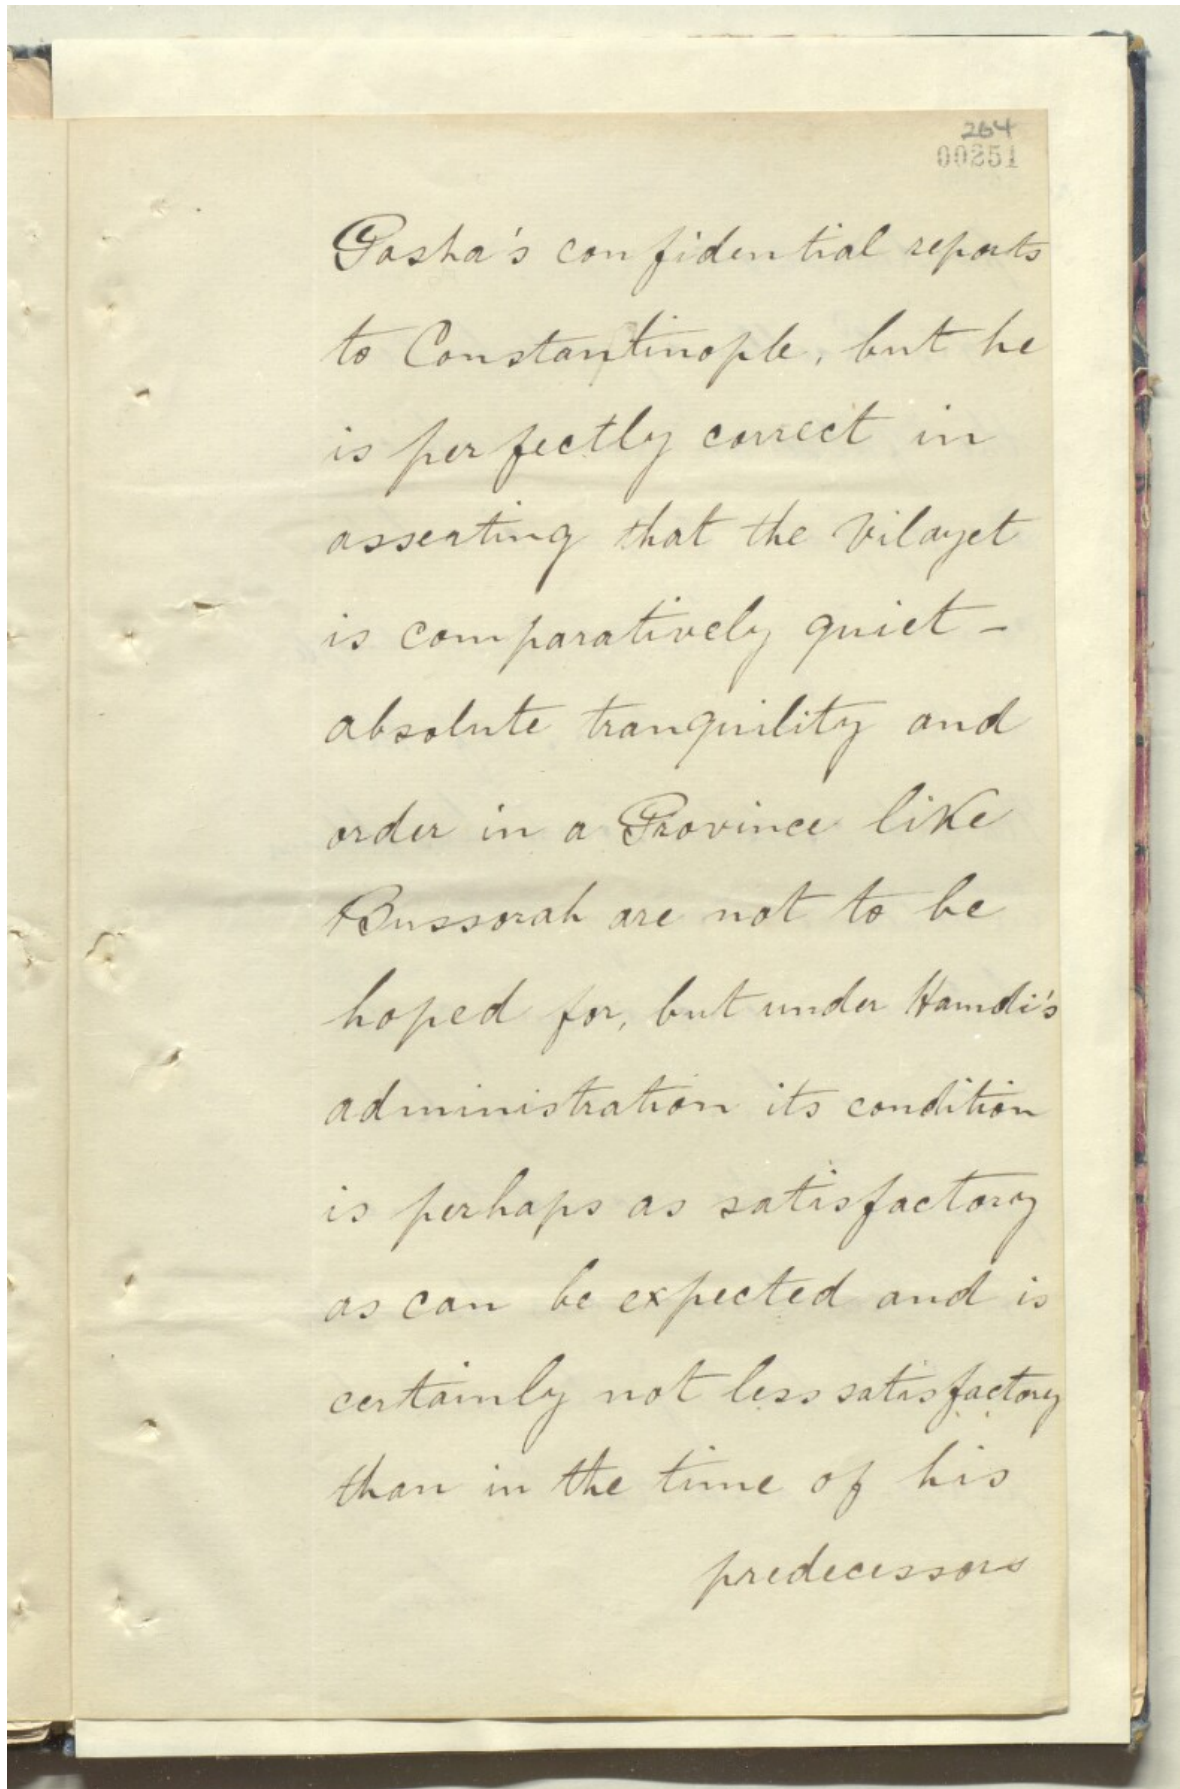 264
00251
Pasha's confidential reports
to Constantinople, but he
is perfectly correct in
asserting that the Vilayet
is comparatively quiet -
absolute tranquility and
order in a Province like
Bussorah are not to be
hoped for, but under Hamdi's
administration its condition
is perhaps as satisfactory
as can be expected and is
certainly not less satisfactory
than in the time of his
predecessors